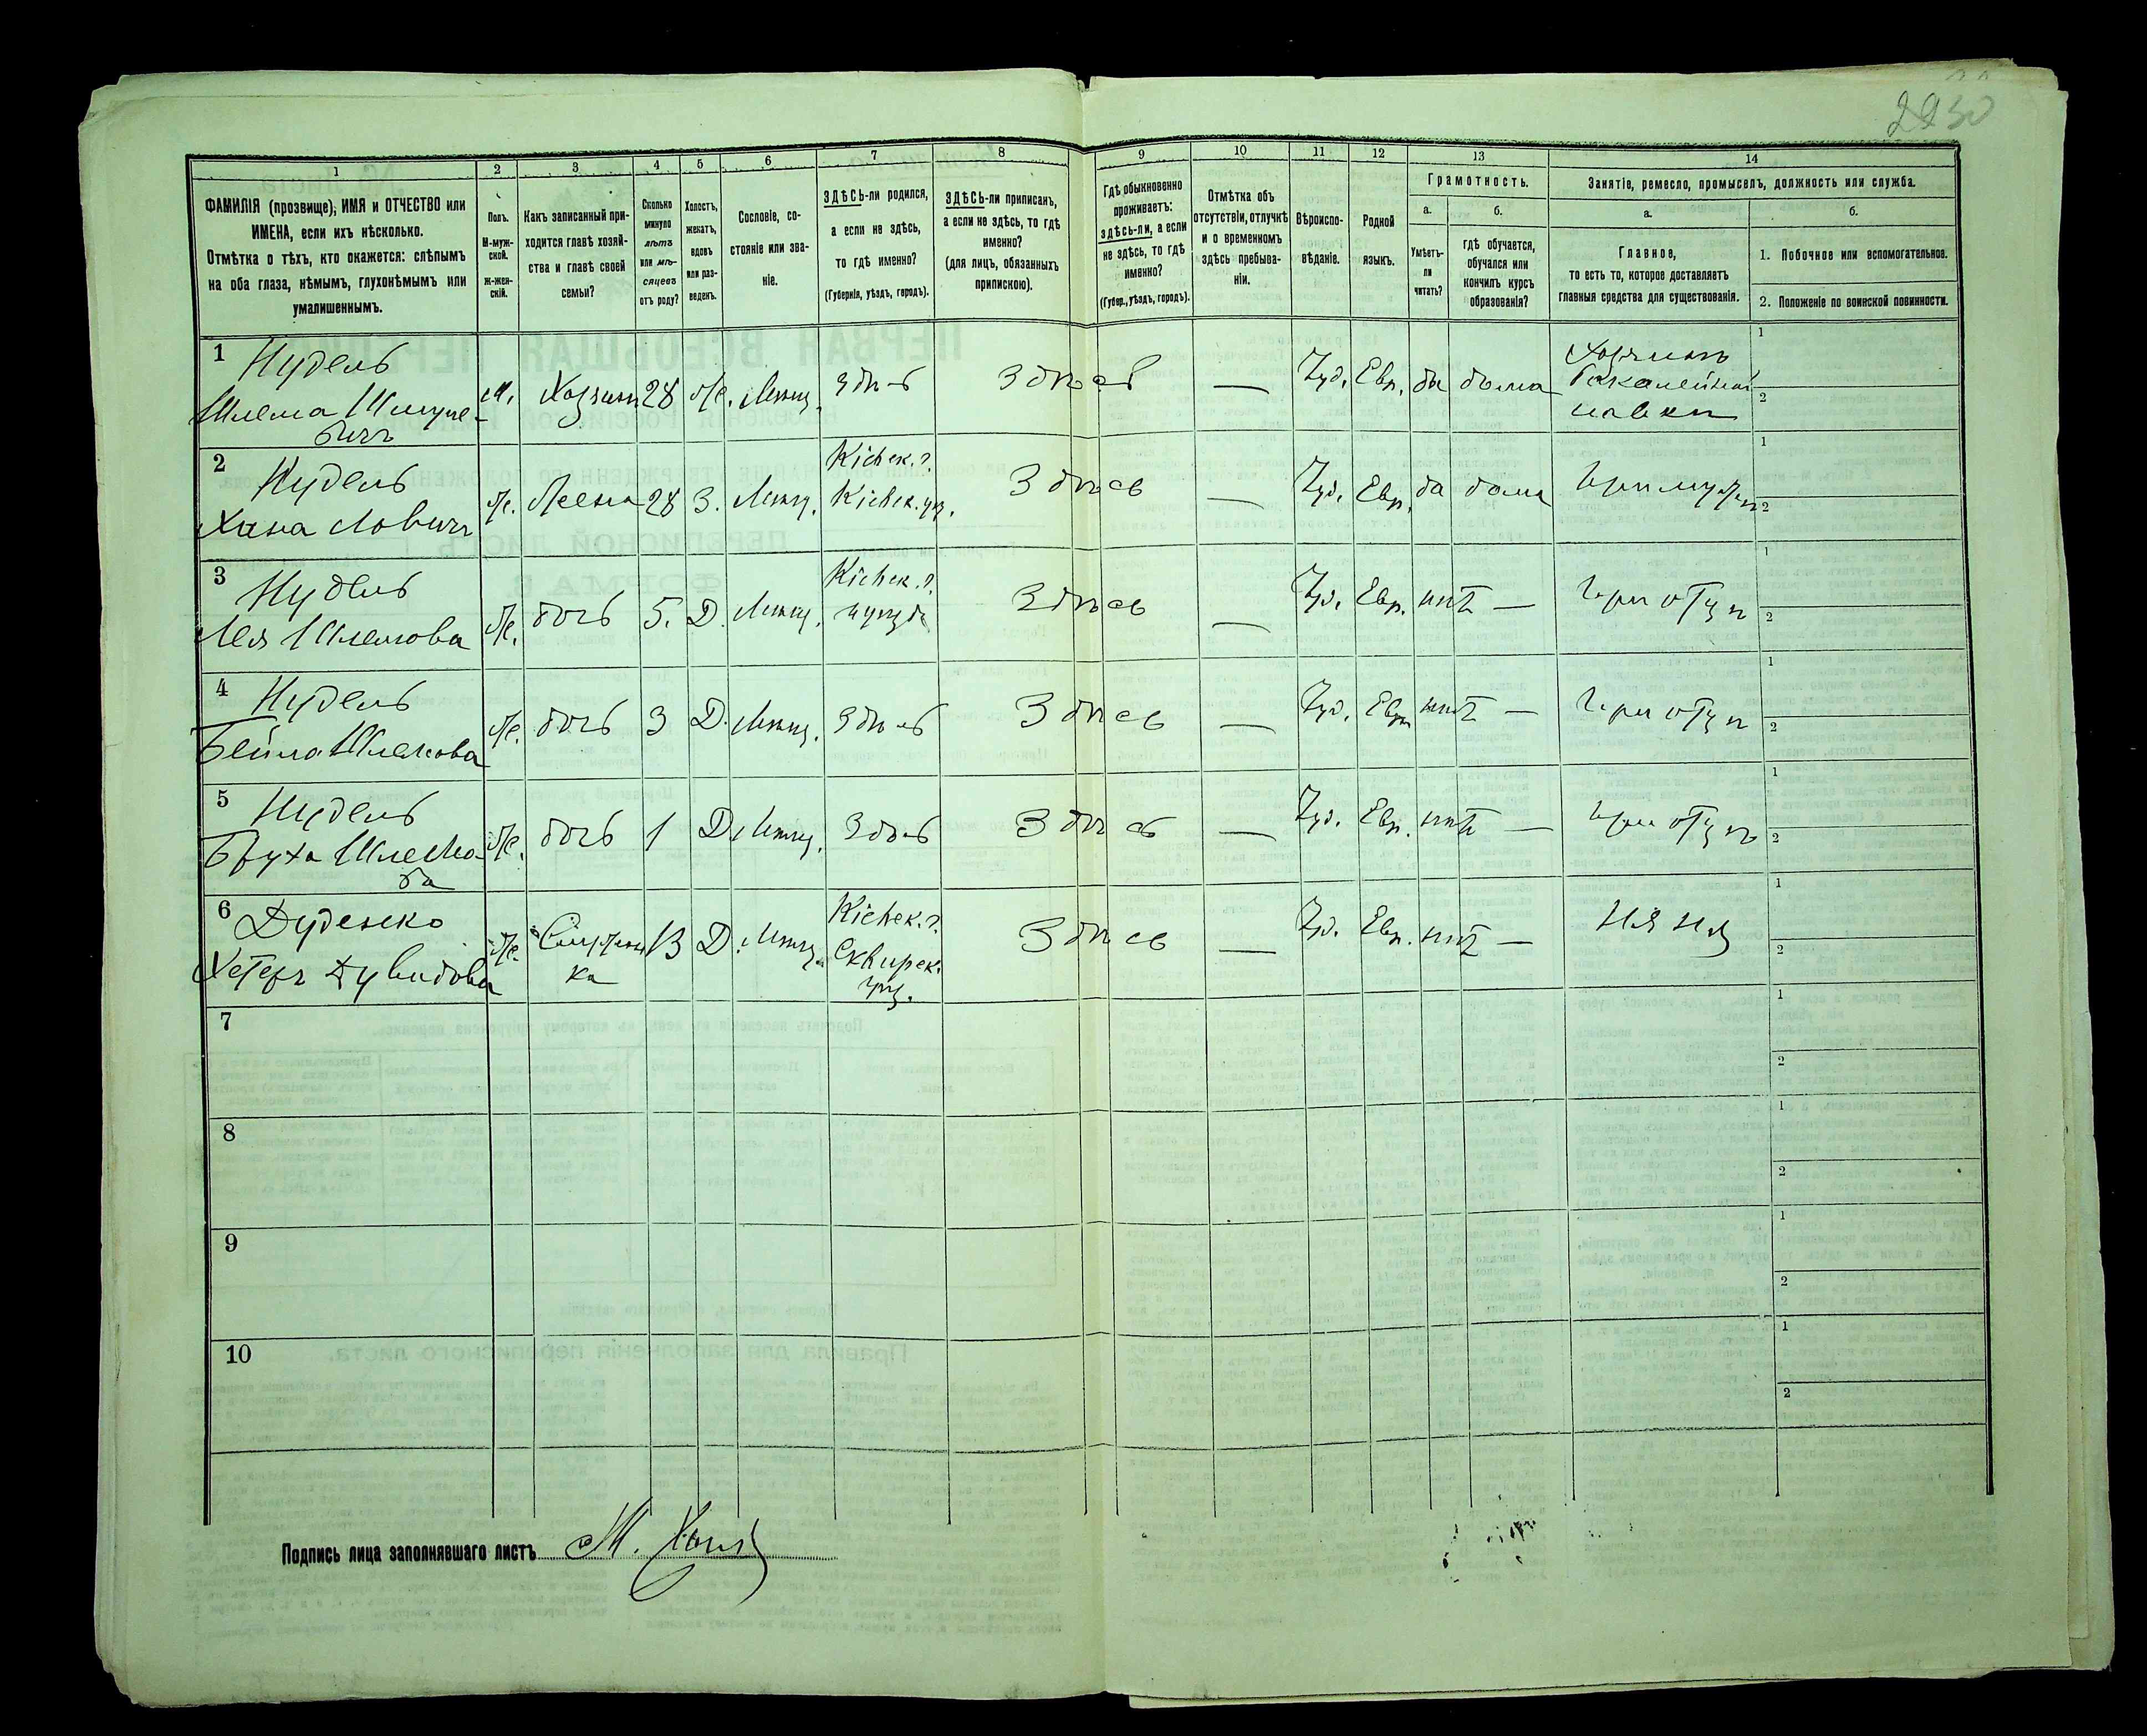 2930
1
2
3
4
5
6
7
8
9
10
11
12
13
14
ФАМИЛІЯ (прозвище), ИМЯ и ОТЧЕСТВО или
ИМЕНА, если ихъ нѣсколько.
Отмѣтка о тѣхъ, кто окажется: слѣпымъ
на оба глаза, нѣмымъ, глухонѣмымъ или
умалишеннымъ.
Полъ.
М-муж-
ской.
Ж-жен-
скій.
Какъ записанный при-
ходится главѣ хозяй-
ства и главѣ своей
семьи?
Сколько
минуло
лѣтъ
или мѣ-
сяцевъ
отъ роду?
Холостъ,
женатъ,
вдовъ
или раз-
веденъ.
Сословіе, со-
стояніе или зва-
ніе.
ЗДѢСЬ-ли родился,
а если не здѣсь,
то гдѣ именно?
(Губернія, уѣздъ, городъ).
ЗДѢСЬ-ли приписанъ,
а если не здѣсь, то гдѣ
именно?
(для лицъ, обязанныхъ
припискою).
Гдѣ обыкновенно
проживаетъ:
здѣсь-ли, а если
не здѣсь, то гдѣ
именно?
(Губер., уѣздъ, городъ).
Отмѣтка объ
отсутствіи, отлучкѣ
и о временномъ
здѣсь пребыва-
ніи.
Вѣроиспо-
вѣданіе.
Родной
языкъ.
Грамотность.
а.
Умѣетъ-
ли
читать?
б.
гдѣ обучается,
обучался или
кончилъ курсъ
образованія?
Занятіе, ремесло, промыселъ, должность или служба.
а.
Главное,
то есть то, которое доставляетъ
главныя средства для существованія.
б.
1. Побочное или вспомогательное.
2. Положеніе по воинской повинности.
1 Нудель
Шлема Шмуле-
вичъ
м. Хозяинъ 28 ж. Мѣщ. Здѣсь Здѣсь — Іуд. Евр. да дома
Хозяинъ
бакалейной
лавки
1
2
2 Нудель
Хана
ж. Жена 28 З. Мѣщ.
Кіевск. г.
Кіевск. уѣз.
Здѣсь — Іуд. Евр. да дома При мужѣ
1
2
3 Нудель
Лея Шлемова
ж. дочь 5. Д. Мѣщ.
Кіевск. г.
и уѣзда
Здѣсь — Іуд. Евр. нѣтъ — При отцѣ
1
2
4 Нудель
Бейла Шлемова
ж. дочь 3 Д. Мѣщ. Здѣсь Здѣсь — Іуд. Евр. нѣтъ — При отцѣ
1
2
5 Нудель
Бруха Шлемо-
ва
ж. дочь 1 Д. Мѣщ. Здѣсь Здѣсь — Іуд. Евр. нѣтъ — При отцѣ
1
2
6 Дуденко
Хетеръ Дувидова
ж. Служан-
ка
13 Д. Мѣщ.
Кіевск. г.
Сквирск.
уѣз.
Здѣсь — Іуд. Евр. нѣтъ — Няня
1
2
7
1
2
8
1
2
9
1
2
10
1
2
Подпись лица заполнявшаго листъ